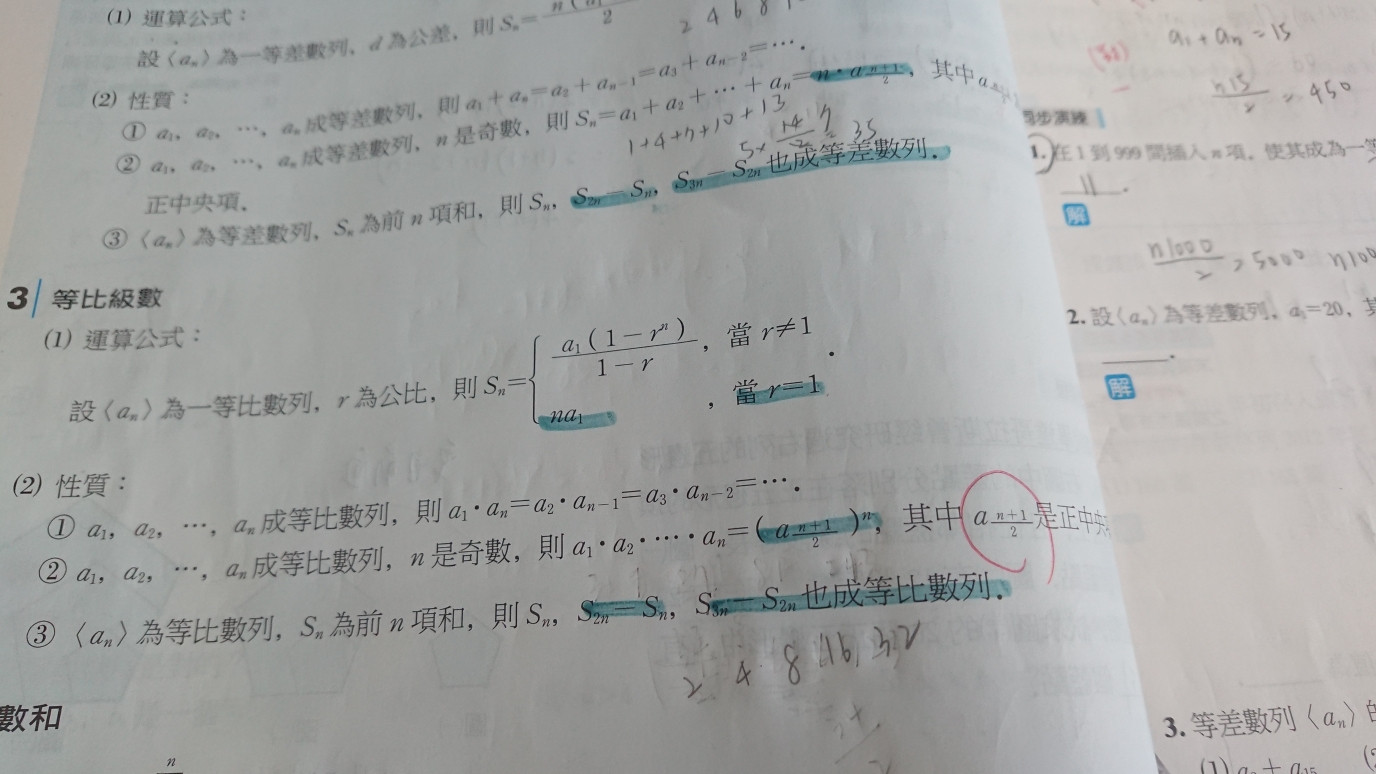 (1) 運算公式：
設〈aₙ〉為一等差數列，d 為公差，則 Sₙ=
2 4 6 8
(2) 性質：
① a₁，a₂，…，aₙ 成等差數列，則 a₁+aₙ=a₂+aₙ₋₁=a₃+aₙ₋₂=….
② a₁，a₂，…，aₙ 成等差數列，n 是奇數，則 Sₙ=a₁+a₂+…+aₙ=n·a_{(n+1)/2}，其中
正中央項.
1+4+7+10+13
35
③〈aₙ〉為等差數列，Sₙ 為前 n 項和，則 Sₙ，S₂ₙ−Sₙ，S₃ₙ−S₂ₙ 也成等差數列.
3 等比級數
(1) 運算公式：
設〈aₙ〉為一等比數列，r 為公比，則 Sₙ={ a₁(1−rⁿ)/(1−r)，當 r≠1
na₁，當 r=1 .
(2) 性質：
① a₁，a₂，…，aₙ 成等比數列，則 a₁·aₙ=a₂·aₙ₋₁=a₃·aₙ₋₂=….
② a₁，a₂，…，aₙ 成等比數列，n 是奇數，則 a₁·a₂·…·aₙ=(a_{(n+1)/2})ⁿ，其中 a_{(n+1)/2} 是正中央
③〈aₙ〉為等比數列，Sₙ 為前 n 項和，則 Sₙ，S₂ₙ−Sₙ，S₃ₙ−S₂ₙ 也成等比數列.
2 4 8 16 32
數和
n
a₁+aₙ=15
n15/2=450
同步演練
1. 在 1 到 999 間插入 n 項，使其成為一等
解
n1000/2 > 5000
2. 設〈aₙ〉為等差數列，a₁=20，其
解
3. 等差數列〈aₙ〉的